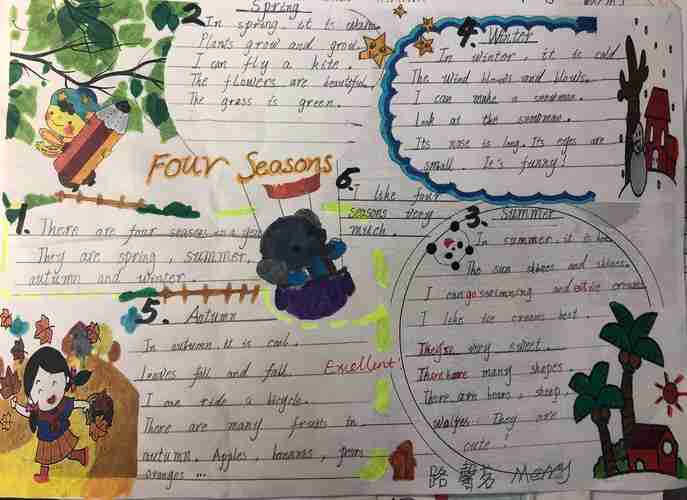 Four Seasons
1. There are four seasons in a year
They are spring, summer,
autumn and winter
2. Spring
In spring, it is warm
Plants grow and grow.
I can fly a kite.
The flowers are beautiful.
The grass is green.
3. Summer
In summer, it is
The sun shines and shines.
I can go swimming and eat ice creams
I like ice creams best.
They're very sweet.
There are many shapes.
There are bears, sheep,
They are
cute!
4. Winter
In winter, it is cold
The wind blows and blows.
I can make a snowman.
Look at the snowman.
Its nose is long. Its eyes are
small. It's funny!
5. Autumn
In autumn, it is cool.
leaves fall and fall
I can ride a bicycle.
There are many fruits in
autumn. Apples, bananas, pears
oranges ...
6. I like four
seasons very
much.
Excellent!
路馨茗 Merry